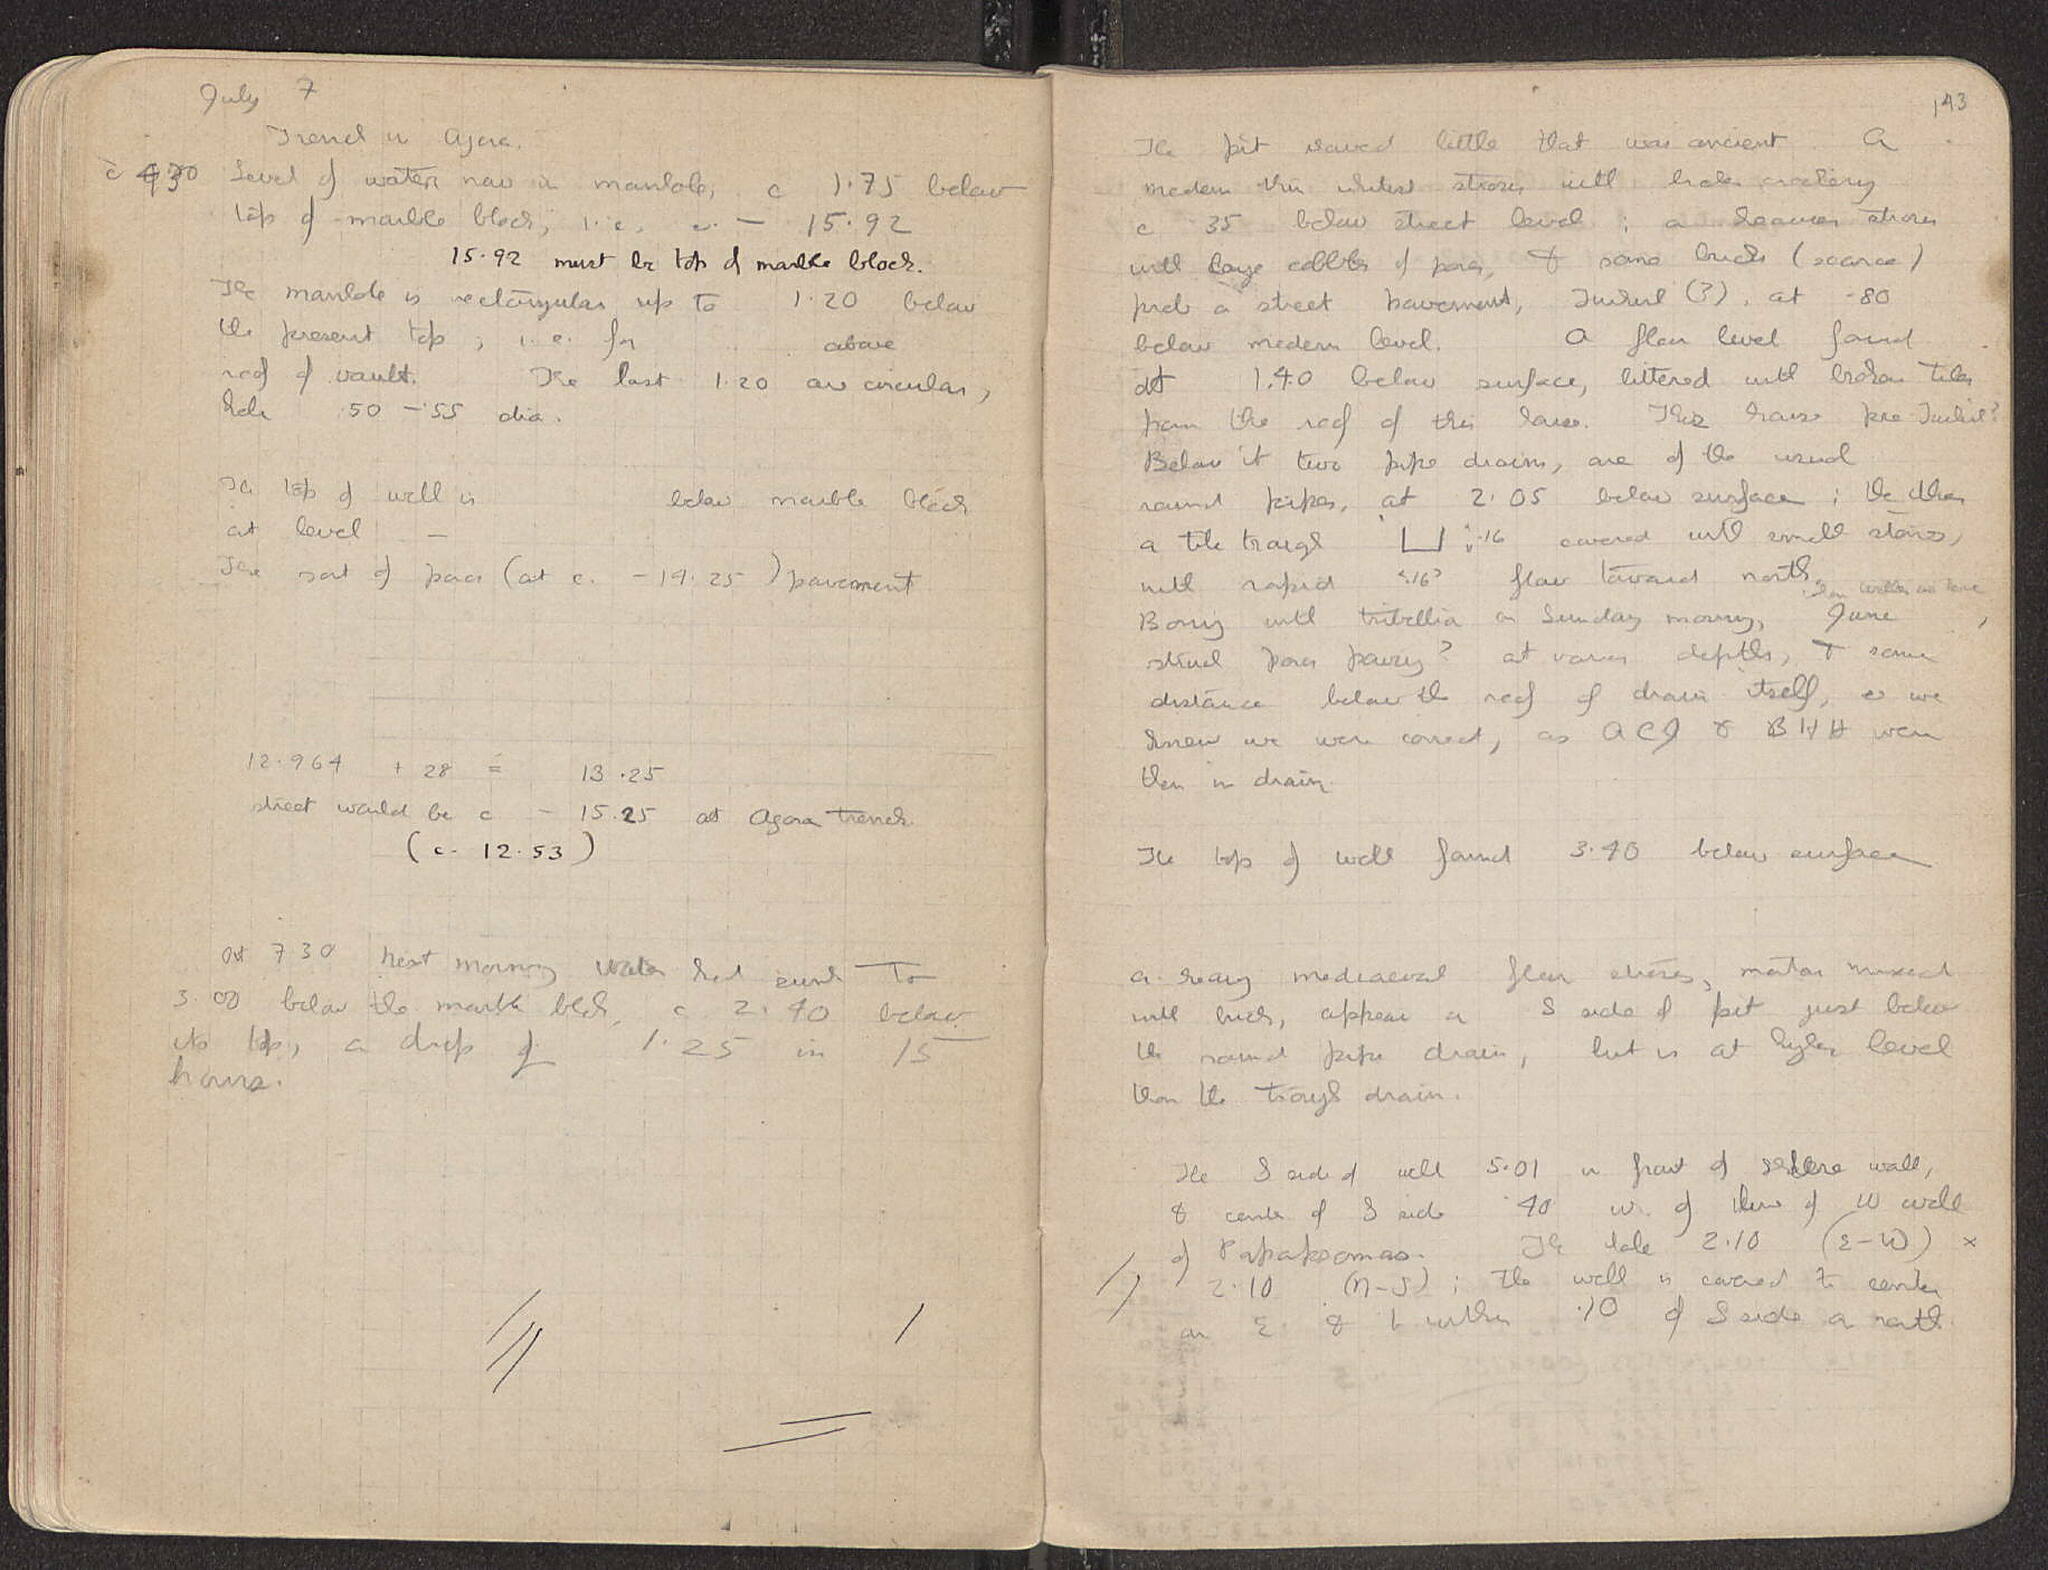 July 7
Trench in Agora.
c 430 Level of water now in manhole, c 1.75 below
top of marble block, i.e. c. - 15.92
15.92 must be top of marble block.
The manhole is rectangular up to 1.20 below
the present top; i.e. for above
roof of vault. The last 1.20 are circular,
hole .50 - .55 dia.
The top of well is below marble block
at level -
The sort of poros (at c. - 14.25) pavement
12.964 + 28 = 13.25
street would be c - 15.25 at Agora Trench.
(c. 12.53)
At 7 30 next morning water had sunk to
3.00 below the marble block, c 2.40 below
its top, a drop of 1.25 in 15
hours.
143
The pit showed little that was ancient. A
modern thin whitest strosis with broken crockery
c 35 below street level; a heavier strosis
with large cobbles of poros, & some brick (scarce)
prob a street pavement, Turkish (?), at .80
below modern level. A floor level found
at 1.40 below surface, littered with broken tiles
from the roof of this house. This house pre Turkish?
Below it two pipe drains, one of the usual
round pipes, at 2.05 below surface; the other
a tile trough .16 covered with small stones,
with rapid .16 flow toward north.
Boring with tribellia on Sunday morning, June ,
struck poros paving? at various depths, & some
distance below the roof of drain itself, as we
knew we were correct, as ACJ & BHH were
then in drain.
The top of well found 3.40 below surface
A heavy mediaeval floor strosis, mortar mixed
with brick, appears on S side of pit just below
the round pipe drain, but is at higher level
than the trough drain.
The S side of well 5.01 in front of wall,
& center of S side .40 w. of line of W wall
of Papakosmas. The hole 2.10 (E-W) x
2.10 (N-S); the well is covered to center
on E & to within .10 of S side on north.